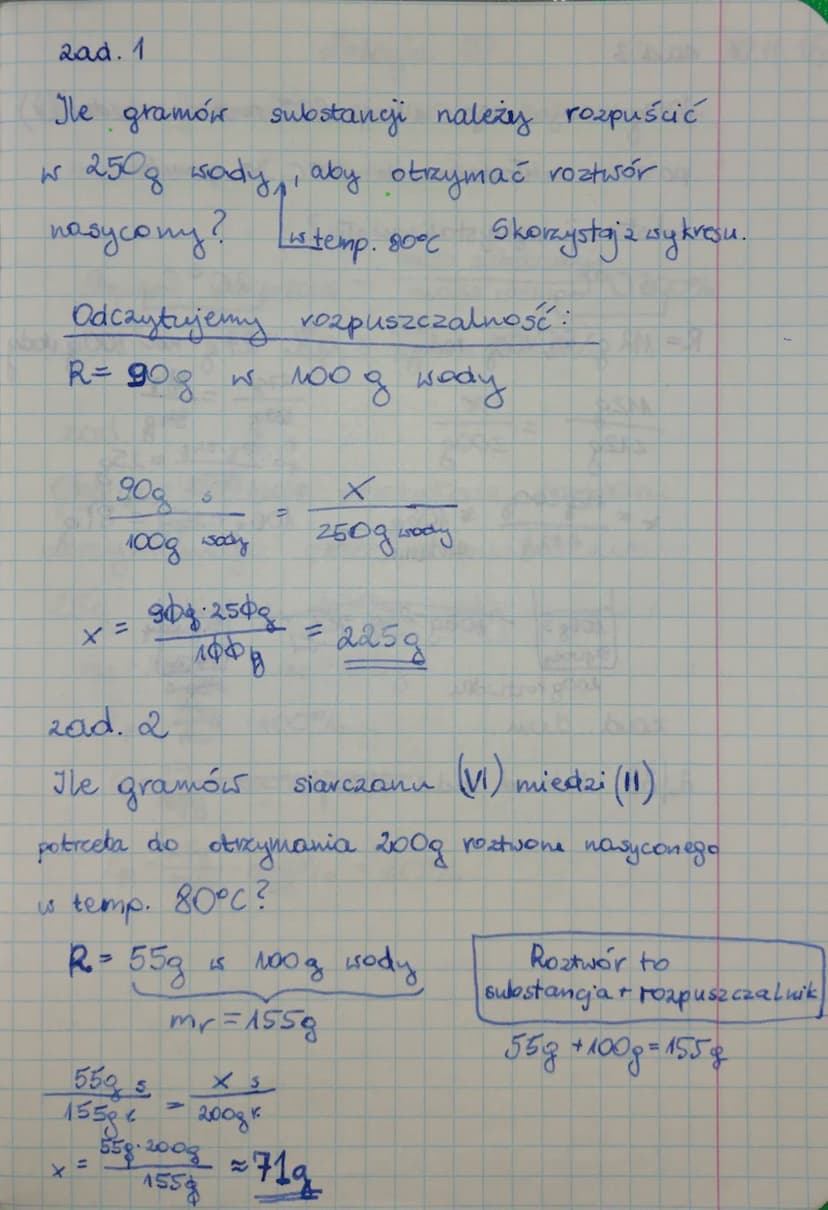 zad. 1
Ile gramów substancji należy rozpuścić
w 250g wody, aby otrzymać roztwór
nasycony? w temp. 80°C Skorzystaj z wykresu.
Odczytujemy rozpuszczalność:
R = 90g w 100g wody
90g s / 100g wody = x / 250g wody
x = 90g · 250g / 100g = 225g
zad. 2
Ile gramów siarczanu (VI) miedzi (II)
potrzeba do otrzymania 200g roztworu nasyconego
w temp. 80°C?
R = 55g w 100g wody
mr = 155g
Roztwór to
substancja + rozpuszczalnik
55g + 100g = 155g
55g s / 155g r = x s / 200g r
x = 55g · 200g / 155g ≈ 71g